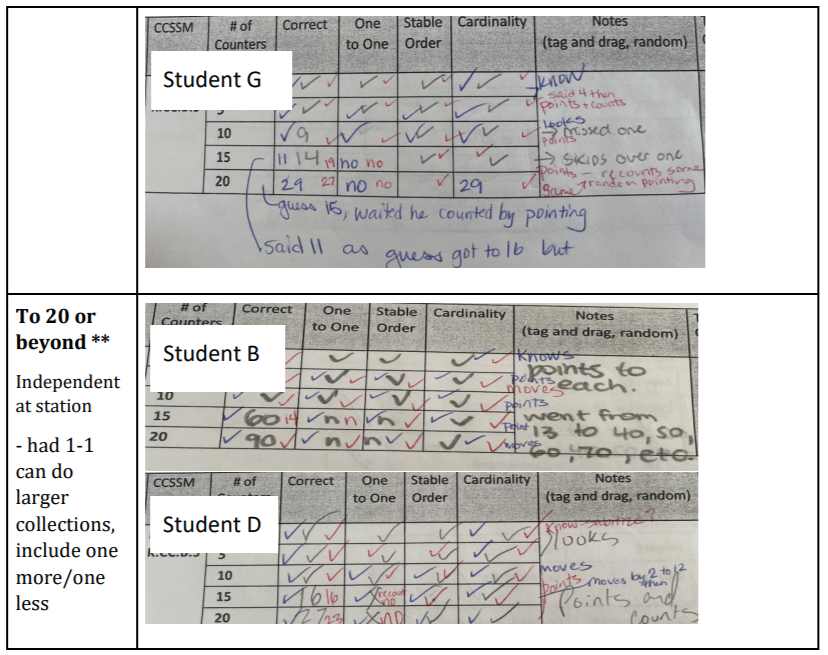 CCSSM # of Counters Correct One to One Stable Order Cardinality Notes (tag and drag, random)
Student G
✓ ✓ ✓ ✓ ✓ ✓ ✓ ✓ ✓ ✓ know
said 4 then
5 ✓ ✓ ✓ ✓ ✓ ✓ ✓ ✓ ✓ points + counts
looks
10 ✓ 9 ✓ ✓ ✓ ✓ ✓ ✓ ✓ → missed one
points
15 11 14 19 no no ✓ ✓ ✓ ✓ → skips over one
points - recounts some
20 29 27 no no ✓ 29 ✓ same random pointing
guess 15, waited he counted by pointing
said 11 as guess got to 16 but
To 20 or
beyond **
Independent
at station
- had 1-1
can do
larger
collections,
include one
more/one
less
# of Counters Correct One to One Stable Order Cardinality Notes (tag and drag, random)
Student B
✓ ✓ ✓ ✓ ✓ ✓ knows
points to
points each.
moves
10 ✓ ✓ ✓ ✓ ✓ ✓ points
15 ✓ 60 14 ✓ n n ✓ n ✓ ✓ ✓ point went from
13 to 40, 50,
20 ✓ 90 ✓ ✓ n ✓ n ✓ ✓ ✓ ✓ moves 60, 70, etc.
CCSSM # of Counters Correct One to One Stable Order Cardinality Notes (tag and drag, random)
Student D
✓ ✓ ✓ ✓ ✓ ✓ ✓ know - subitize?
K.CC.B.5 5 ✓ ✓ ✓ ✓ ✓ ✓ ✓ ✓ looks
10 ✓ ✓ ✓ ✓ ✓ ✓ ✓ ✓ ✓ moves
points moves by 2 to 12
then
15 ✓ 16 16 ✓ X recount no ✓ ✓ ✓ ✓ Points and
20 ✓ 27 23 ✓ X no ✓ ✓ ✓ counts